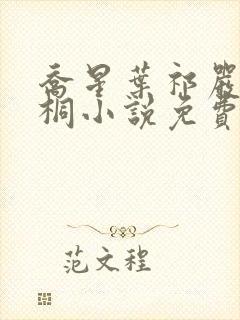 喬星葉祁嚴
桐小說免費
范文程